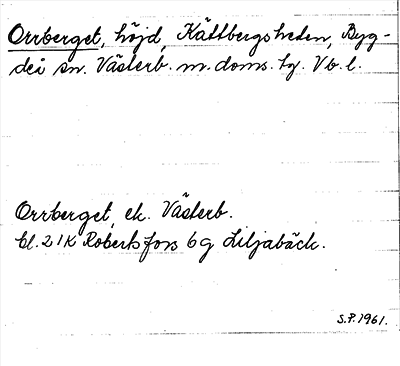 Orrberget, höjd, Kättbergsheden, Byg-
deå sn. Västerb. m. doms. tg. Vb. l.
Orrberget, ek. Västerb.
bl. 21K Robertsfors 6g Liljabäck.
S.P. 1961.